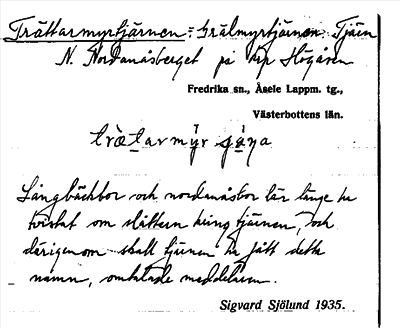 Trättarmyrtjärnen = Grälmyrtjärnen Tjärn
N. Nordanåsberget på krp Högåsen
Fredrika sn., Åsele Lappm. tg.,
Västerbottens län.
Långbäckbor och nordanåsbor lär länge ha
tvistat om slåttern kring tjärnen, och
därigenom skall tjärnen ha fått detta
namn, omtalade meddelaren.
Sigvard Sjölund 1935.